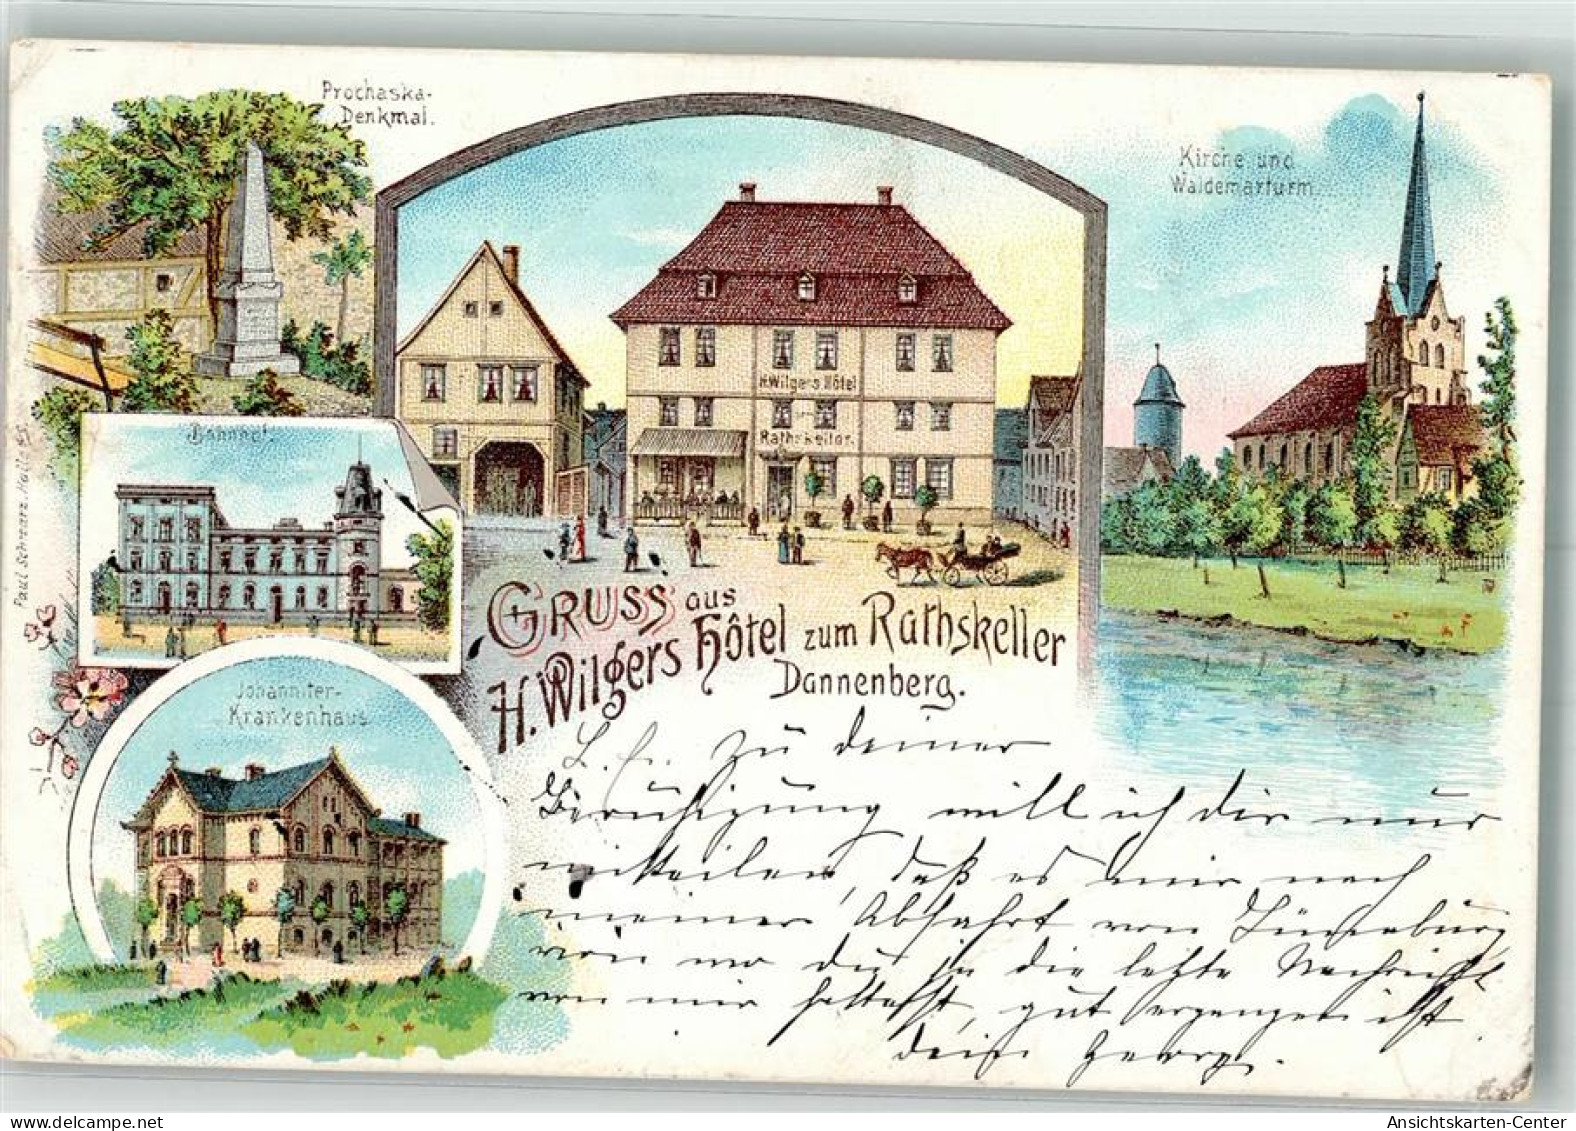 Prochaska-
Denkmal.
Kirche und
Waldemarturm.
Bahnhof.
H.Wilgers Hôtel
zum
Rathskeller.
Paul Schwarz, Halle a/S.
GRUSS aus
H. Wilgers Hôtel zum Rathskeller
Dannenberg.
Johanniter-
Krankenhaus
L. Fr. Zu deiner
Beruhigung will ich dir nur
mitteilen, daß es mir nach
meiner Abfahrt von Lüneburg
von wo du ja die letzte Nachricht
von mir hattest, gut ergangen ist.
dein Georg.
Ansichtskarten-Center